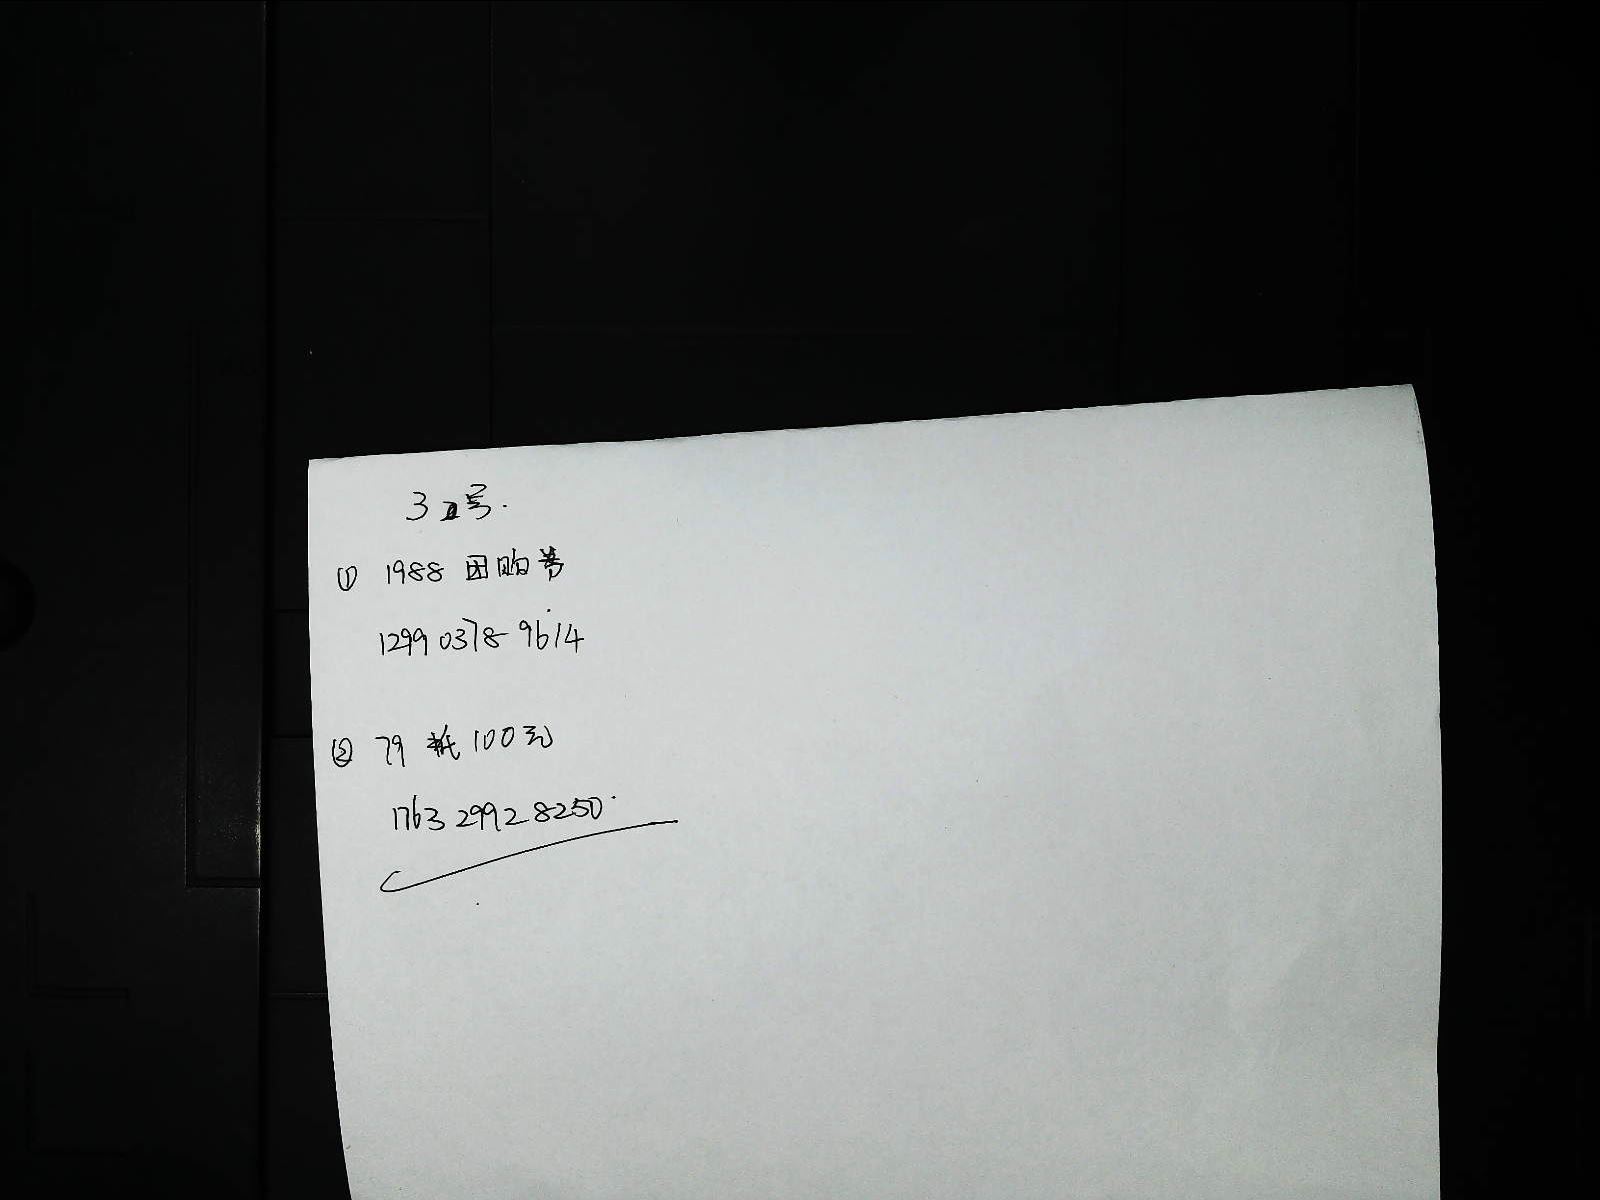 3号.
① 1988 团购券
1299 0378 9614
② 79 抵 100元
1763 2992 8250